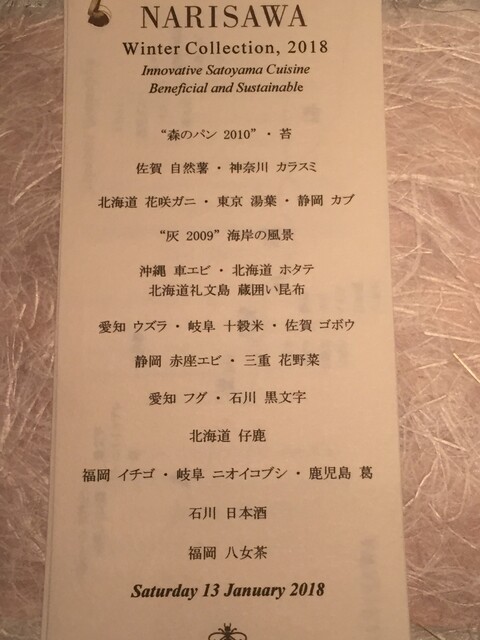 NARISAWA
Winter Collection, 2018
Innovative Satoyama Cuisine
Beneficial and Sustainable
“森のパン 2010”・苔
佐賀 自然薯・神奈川 カラスミ
北海道 花咲ガニ・東京 湯葉・静岡 カブ
“灰 2009” 海岸の風景
沖縄 車エビ・北海道 ホタテ
北海道礼文島 蔵囲い昆布
愛知 ウズラ・岐阜 十穀米・佐賀 ゴボウ
静岡 赤座エビ・三重 花野菜
愛知 フグ・石川 黒文字
北海道 仔鹿
福岡 イチゴ・岐阜 ニオイコブシ・鹿児島 葛
石川 日本酒
福岡 八女茶
Saturday 13 January 2018